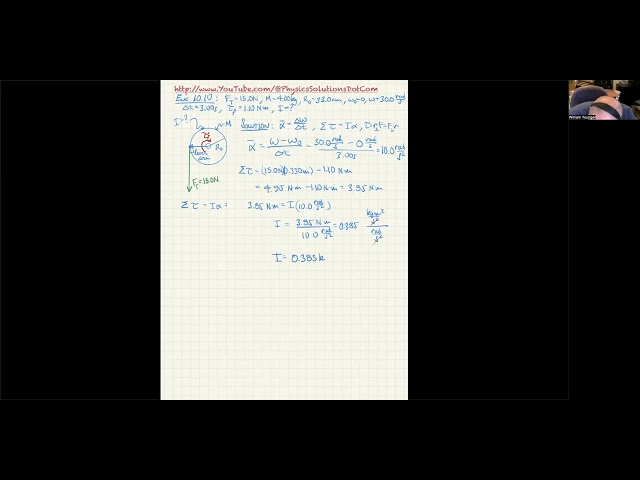 http://www.YouTube.com/@PhysicsSolutionsDotCom
Ex: 10.10: F_T=15.0N, M=4.00kg, R_0=33.0cm, ω_0=0, ω=30.0 rad/s
Δt=3.00s, τ_f=1.10 N m, I=?
I=? M Solution: ᾱ = Δω/Δt, Στ=Iα, τ=r⊥F=F⊥r
R_0
lever arm
F_T=15.0N
ᾱ = (ω-ω_0)/Δt = (30.0 rad/s - 0 rad/s)/3.00s = 10.0 rad/s²
Στ=(15.0N)(0.330m)-1.10 Nm
= 4.95 Nm-1.10 Nm = 3.85 Nm
Στ=Iα: 3.85 Nm = I(10.0 rad/s²)
I = 3.85 Nm / 10.0 rad/s² = 0.385 kg m²/s² / rad/s²
I = 0.385 k
William Younger